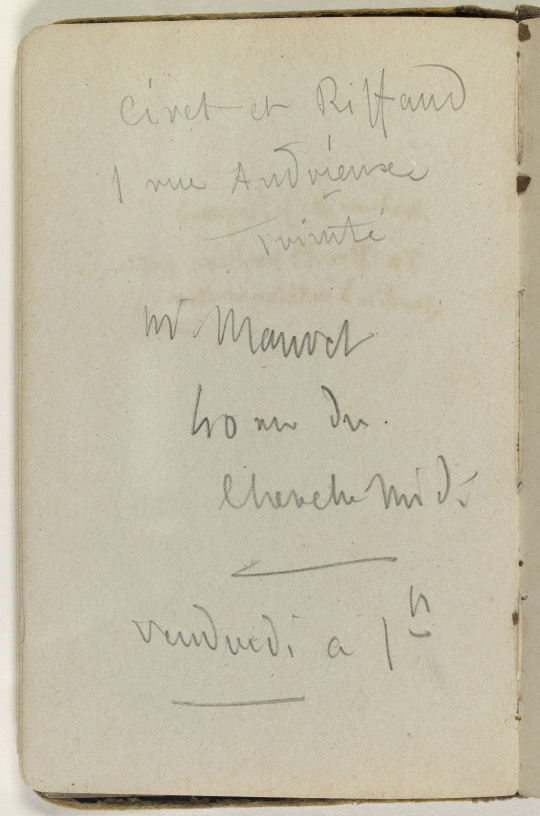 Civet et Riffaud
1 rue Andrieuse
Trinité
Mr. Manvet
40 rue du
Cherche Midi
vendredi a 1h